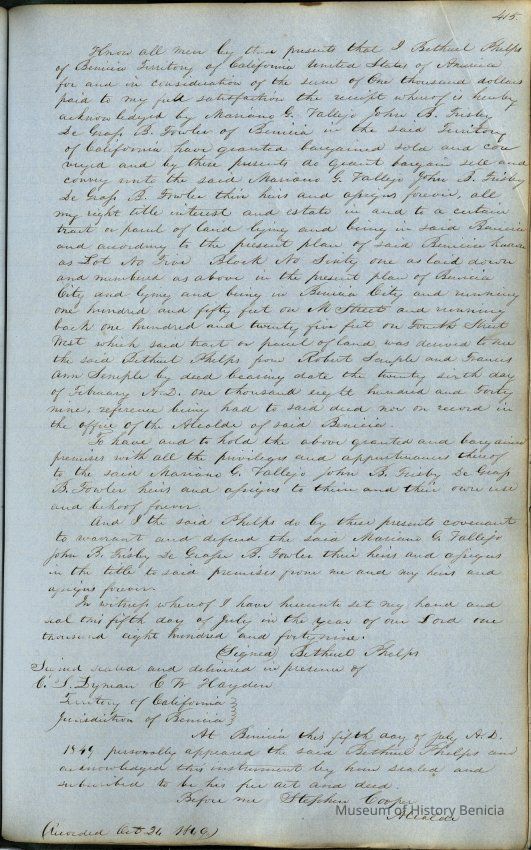 415
Know all men by these presents that I Bethuel Phelps
of Benicia Territory of California United States of America
for and in consideration of the sum of One thousand dollars
paid to my full satisfaction the receipt whereof is hereby
acknowledged by Mariano G. Vallejo John B. Frisby
De Grass B. Fowler of Benicia in the said Territory
of California have granted bargained sold and con
veyed and by these presents do grant bargain sell and
convey unto the said Mariano G. Vallejo John B. Frisby
De Grass B. Fowler their heirs and assigns forever, all
my right title interest and estate in and to a certain
tract or parcel of land lying and being in said Benicia
and according to the present plan of said Benicia known
as Lot No Five Block No Sixty one as laid down
and numbered as above in the present plan of Benicia
City and lying and being in Benicia City and running
one hundred and fifty feet on M Street and running
back one hundred and twenty five feet on Fourth Street
West which said tract or parcel of land was deeded to me
the said Bethuel Phelps from Robert Semple and Frances
Ann Semple by deed bearing date the twenty sixth day
of February A.D. one thousand eight hundred and Forty
nine, reference being had to said deed now on record in
the office of the Alcalde of said Benicia.
To have and to hold the above granted and bargained
premises with all the privileges and appurtenances thereof
to the said Mariano G. Vallejo John B. Frisby De Grass
B. Fowler heirs and assigns to them and their own use
and behoof forever.
And I the said Phelps do by these presents covenant
to warrant and defend the said Mariano G. Vallejo
John B. Frisby De Grasse B. Fowler their heirs and assigns
in the title to said premises from me and my heirs and
assigns forever.
In witness whereof I have hereunto set my hand and
seal this fifth day of July in the year of our Lord one
thousand eight hundred and forty nine.
Signed Bethuel Phelps
Signed sealed and delivered in presence of
C. S. Lyman C W Hayden
Territory of California }
Jurisdiction of Benicia }
At Benicia this fifth day of July A.D.
1849 personally appeared the said Bethuel Phelps and
acknowledged this instrument by him sealed and
subscribed to be his free act and deed.
Before me Stephen Cooper
Alcalde
(Recorded Oct 26
Museum of History Benicia